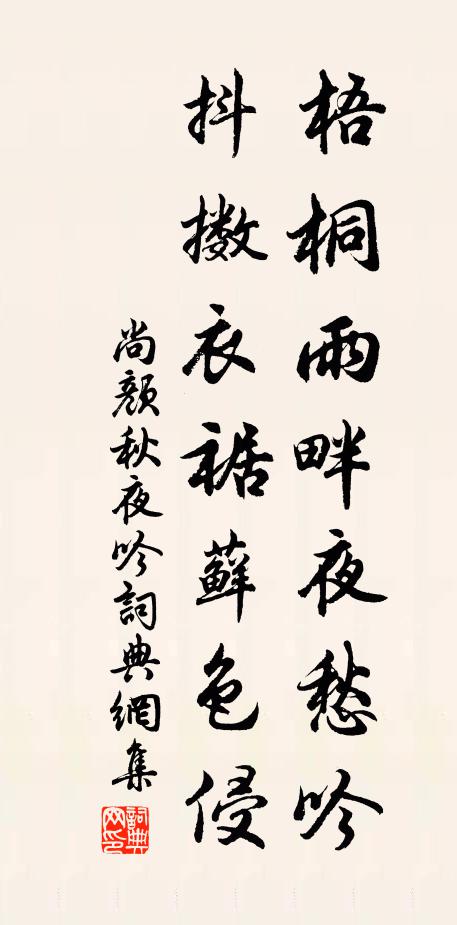 梧桐雨畔夜愁吟
抖擻衣裾蘚色侵
尚顏秋夜吟詞典網集
詞典網印